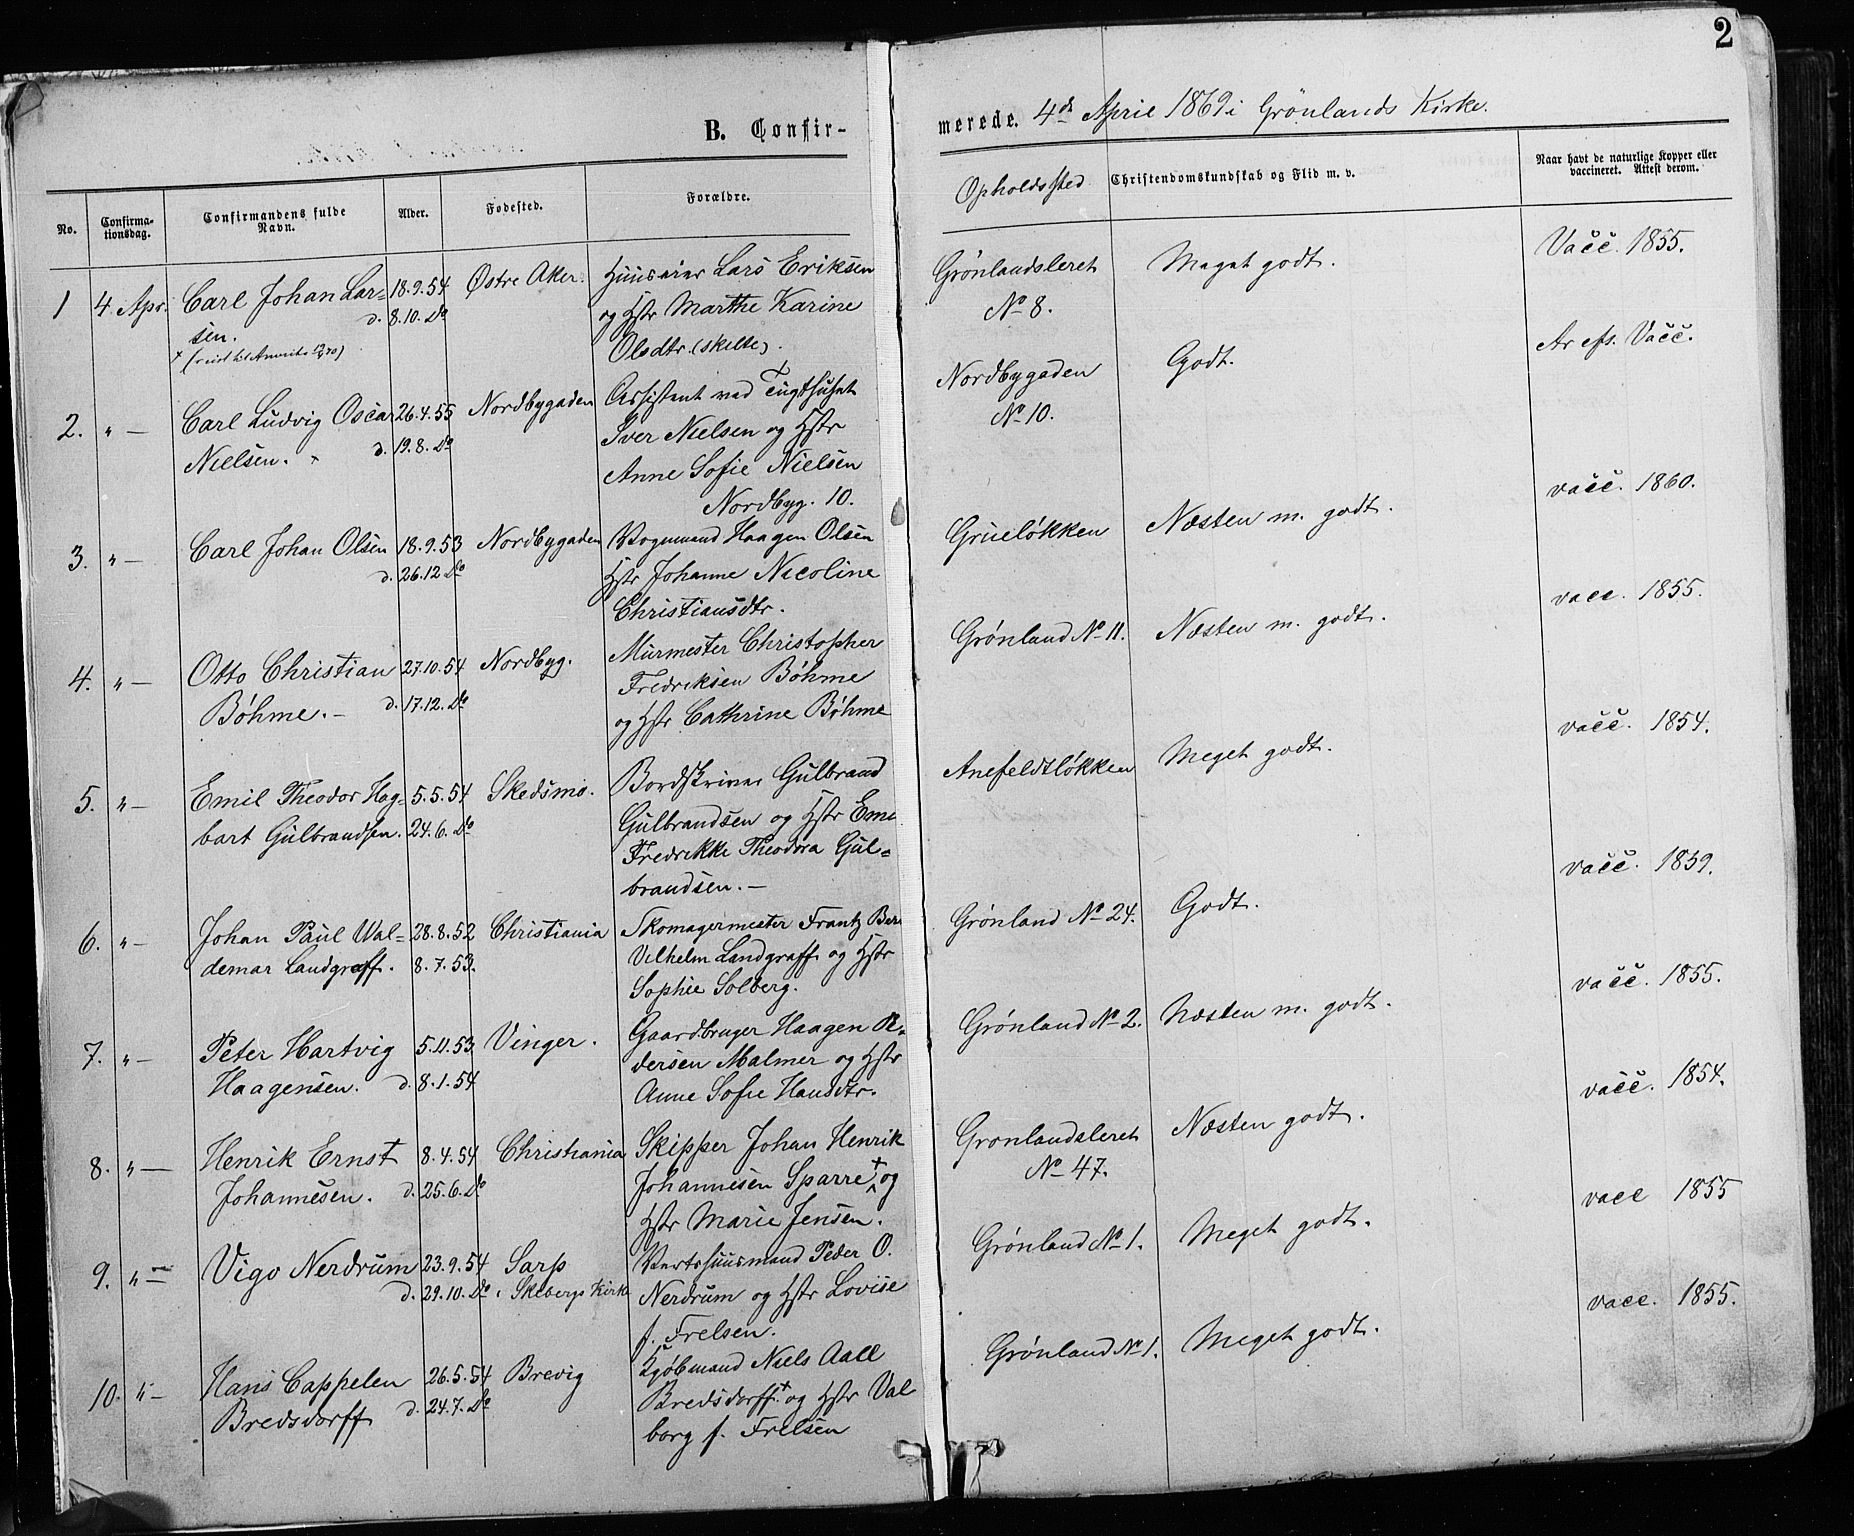 2
B. Confir-
merede. 4de April 1869 i Grönlands Kirke.
No. Confirma-tionsdag. Confirmandens fulde Navn. Alder. Fødested. Forældre.
Opholdssted Christendomskundskab og Flid m. v. Naar havt de naturlige Kopper eller vaccineret. Attest derom.
1 4. Apr. Carl Johan Lar= 18.9.54 Østre Aker. Huuseier Lars Eriksen
sen. d. 8.10. Do og Hstr Marthe Karine
Olsdtr. (skilte).
2. " — Carl Ludvig Oscar 26.4.55 Nordbygaden Assistent ved Tugthuset
Nielsen. d. 19.8. Do Iver Nielsen og Hstr
Anne Sofie Nielsen
Nordbyg. 10.
3. " — Carl Johan Olsen 18.9.53 Nordbygaden Vognmand Haagen Olsen
d. 26.12 Do Hstr Johanne Nicoline
Christiansdtr.
4. " — Otto Christian 27.10.54 Nordbyg. Murmester Christopher
Böhme. — d. 17.12. Do Fredriksen Böhme
og Hstr Cathrine Böhme
5. " — Emil Theodor Hag= 5.5.54 Skedsmo. Bordskriver Gulbrand
bart Gulbrandsen. 24.6. Do Gulbrandsen og Hstr
Fredrikke Theodora Gul=
brandsen. —
6. " — Johan Paul Wal= 28.8.52 Christiania Skomagermester Frantz
demar Landgraff. 8.7.53. Vilhelm Landgraff og Hstr
Sophie Solberg.
7. " — Peter Hartvig 5.11.53 Vinger. Gaardbruger Haagen Pe-
Haagensen. d. 8.1.54 dersen Malmer og Hstr
Anne Sofie Hansdtr.
8. " — Henrik Ernst 8.4.54 Christiania Skipper Johan Henrik
Johannesen. d. 25.6. Do Johannesen Sparre + og
Hstr Marie Jensen.
9. " — Vigo Nerdrum 23.9.54 Sarp Vertshuusmand Peder O.
d. 29.10. Do Skebergs Kirke Nerdrum og Hstr Lovise
f. Frelsen.
10. " — Hans Cappelen 26.5.54 Brevig Kjøbmand Niels Aall
Bredsdorff d. 24.7. Do Bredsdorff + og Hstr Val
borg f. Frelsen
Grønlandsleret Meget godt. Vacc. 1855.
No 8.
Nordbygaden Godt. Vacc.
No 10.
Grueløkken Næsten m. godt. vacc. 1860.
Grønland No 11. Næsten m. godt. vacc. 1855.
Anefeldtløkken Meget godt. vacc. 1854.
Grønland No 24. Godt. vacc. 1859.
Grønland No 2. Næsten m. godt. vacc. 1855.
Grønlandsleret Næsten godt. vacc. 1854.
No 47.
Grønland No 1. Meget godt. vacc 1855
Grønland No 1. Meget godt. vacc. 1855.